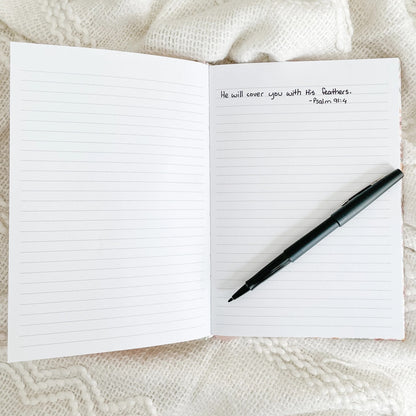 He will cover you with His feathers.
-Psalm 91:4